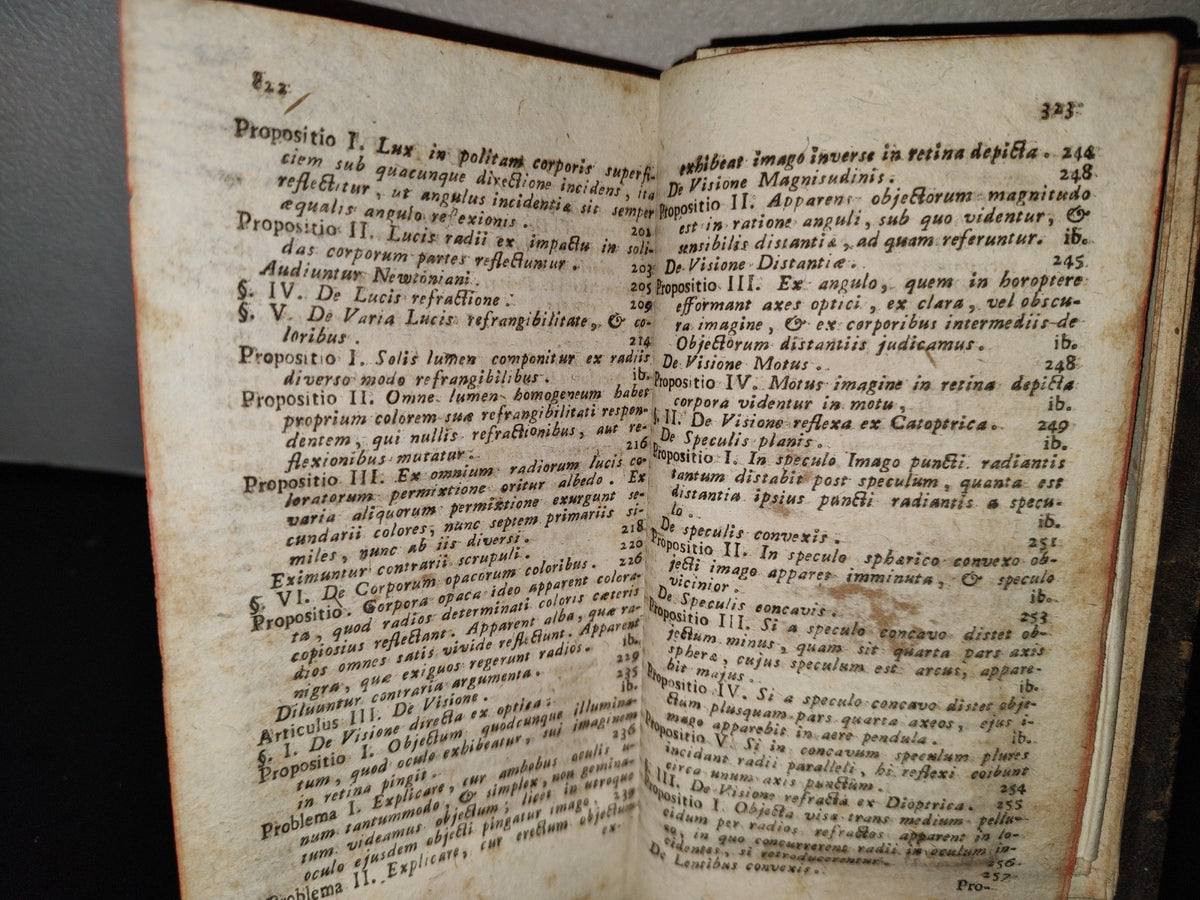 822
Propositio I. Lux in politam corporis superfi-
ciem sub quacunque directione incidens, ita
reflectitur, ut angulus incidentiæ sit semper
æqualis angulo reflexionis. 201
Propositio II. Lucis radii ex impactu in soli-
das corporum partes reflectuntur. 203
Audiuntur Newtoniani. 205
§. IV. De Lucis refractione. 209
§. V. De Varia Lucis refrangibilitate, & co-
loribus. 214
Propositio I. Solis lumen componitur ex radiis
diverso modo refrangibilibus. ib.
Propositio II. Omne lumen homogeneum habet
proprium colorem suæ refrangibilitati respon-
dentem, qui nullis refractionibus, aut re-
flexionibus mutatur. 216
Propositio III. Ex omnium radiorum lucis co-
loratorum permixtione oritur albedo. Ex
varia aliquorum permixtione exurgunt se-
cundarii colores, nunc septem primariis si-
miles, nunc ab iis diversi. 218
Eximuntur contrarii scrupuli. 220
§. VI. De Corporum opacorum coloribus. 226
Propositio. Corpora opaca ideo apparent colora-
ta, quod radios determinati coloris cæteris
copiosius reflectant. Apparent alba, quæ ra-
dios omnes satis vivide reflectunt. Apparent
nigra, quæ exiguos regerunt radios. ib.
Diluuntur contraria argumenta. 229
Articulus III. De Visione. 235
§. I. De Visione directa ex optica. ib.
Propositio I. Objectum quodcunque illumina-
tum, quod oculo exhibeatur, sui imaginem
in retina pingit. 236
Problema I. Explicare, cur ambobus oculis u-
num tantummodo, & simplex, non gemina-
tum videamus objectum; licet in utroque
oculo ejusdem objecti pingatur imago. 239
Problema II. Explicare, cur erectum objectum
ex-
323
exhibeat imago inverse in retina depicta. 244
De Visione Magnisudinis. 248
Propositio II. Apparens objectorum magnitudo
est in ratione anguli, sub quo videntur, &
sensibilis distantiæ, ad quam referuntur. ib.
De Visione Distantiæ. 245
Propositio III. Ex angulo, quem in horoptere
efformant axes optici, ex clara, vel obscu-
ra imagine, & ex corporibus intermediis de
Objectorum distantiis judicamus. ib.
De Visione Motus. 248
Propositio IV. Motus imagine in retina depicta
corpora videntur in motu, ib.
§. II. De Visione reflexa ex Catoptrica. 249
De Speculis planis. ib.
Propositio I. In speculo Imago puncti radiantis
tantum distabit post speculum, quanta est
distantia ipsius puncti radiantis a specu-
lo. ib.
De speculis convexis. 251
Propositio II. In speculo sphærico convexo ob-
jecti imago apparet imminuta, & speculo
vicinior. ib.
De Speculis concavis. 253
Propositio III. Si a speculo concavo distet ob-
jectum minus, quam sit quarta pars axis
spheræ, cujus speculum est arcus, appare-
bit majus. ib.
Propositio IV. Si a speculo concavo distet obje-
ctum plusquam pars quarta axeos, ejus i-
mago apparebit in aere pendula. ib.
Propositio V. Si in concavum speculum plures
incidant radii paralleli, hi reflexi coibunt
circa unum axis punctum. 254
§. III. De Visione refracta ex Dioptrica. 255
Propositio I. Objecta visa trans medium pellu-
cidum per radios refractos apparent in lo-
co, in quo concurrerent radii in oculum in-
cidentes, si retroducerentur. 256
De Lentibus convexis. 257
Pro-